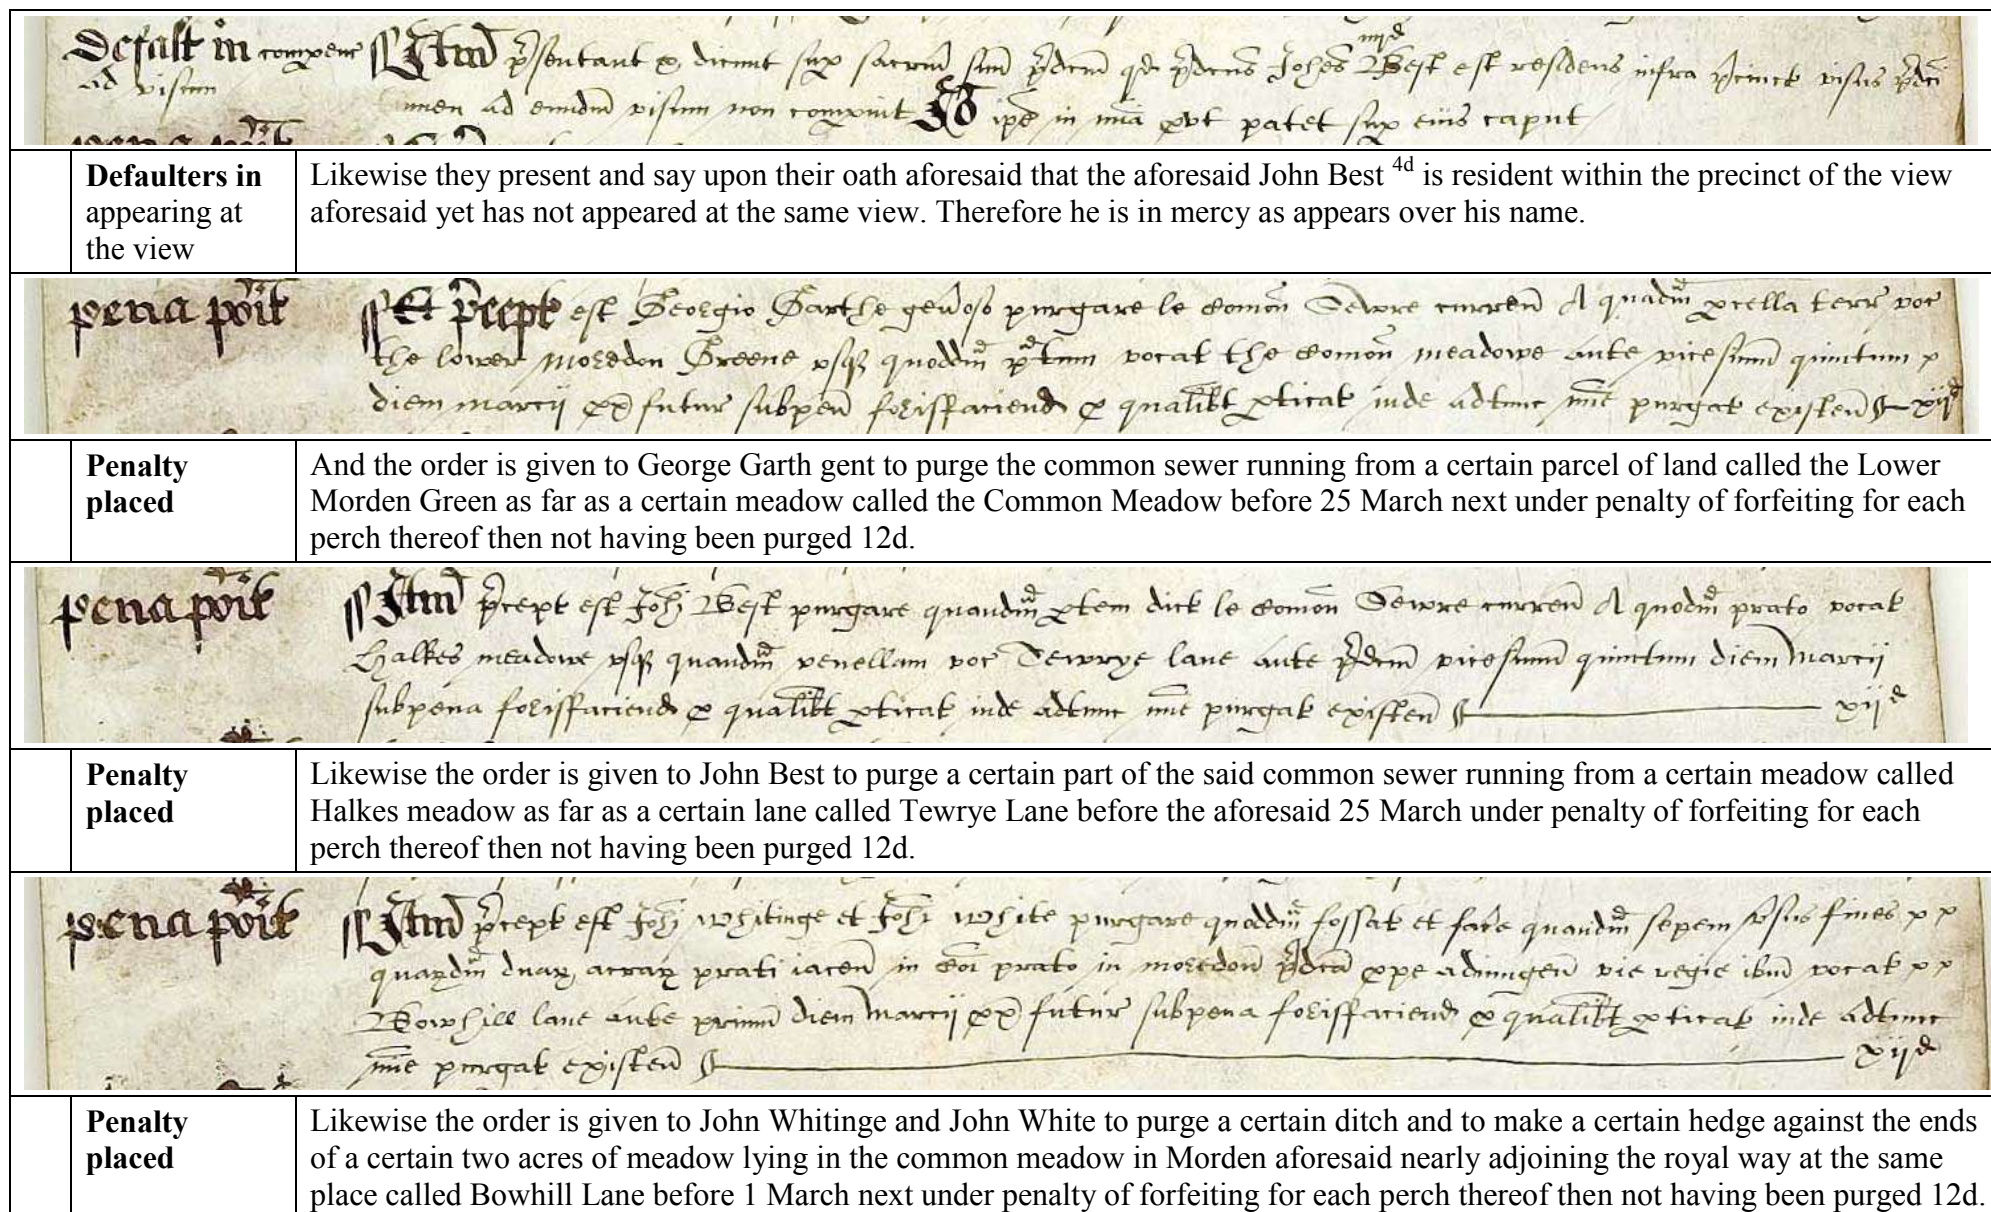 Defalt in comparenc
ad visum
Itm p'sentant & dicunt sup sacrm suu p'dcm qd p'dcus Johes Best iiijd est residens infra p'cinct visus p'dci
tamen ad eundm visum non comparuit Io ipe in mia put patet sup eius caput
Defaulters in
appearing at
the view
Likewise they present and say upon their oath aforesaid that the aforesaid John Best 4d is resident within the precinct of the view
aforesaid yet has not appeared at the same view. Therefore he is in mercy as appears over his name.
pena poit
Et p'cept est Georgio Garthe gen'oso purgare le comon Sewre curren A quadm pcella terr voc
the lower moredon Greene vsq quoddm p'tum vocat the comon meadowe ante vicesimu quintum
diem marcij px futur subpen forisfaciend p qualibt pticat inde adtunc mie purgat existen xijd
Penalty
placed
And the order is given to George Garth gent to purge the common sewer running from a certain parcel of land called the Lower
Morden Green as far as a certain meadow called the Common Meadow before 25 March next under penalty of forfeiting for each
perch thereof then not having been purged 12d.
pena poit
Itm p'cept est Johi Best purgare quandm ptem dict le comon Sewre curren A quodm prato vocat
Halkes meadowe vsq quandm venellam voc Tewrye lane ante p'dcm vicesimu quintum diem marcij
subpena forisfaciend p qualibt pticat inde adtunc mie purgat existen xijd
Penalty
placed
Likewise the order is given to John Best to purge a certain part of the said common sewer running from a certain meadow called
Halkes meadow as far as a certain lane called Tewrye Lane before the aforesaid 25 March under penalty of forfeiting for each
perch thereof then not having been purged 12d.
pena poit
Itm p'cept est Johi whitinge et Johi white purgare quoddm fossat et fac'e quandm sepem v'sus fines
quardm duar acrar prati iacen in coi prato in moredon p'dca ppe adiungen vie regie ibm vocat
Bowhill lane ante primu diem marcij px futur subpena forisfaciend p qualibt pticat inde adtunc
mie purgat existen xijd
Penalty
placed
Likewise the order is given to John Whitinge and John White to purge a certain ditch and to make a certain hedge against the ends
of a certain two acres of meadow lying in the common meadow in Morden aforesaid nearly adjoining the royal way at the same
place called Bowhill Lane before 1 March next under penalty of forfeiting for each perch thereof then not having been purged 12d.